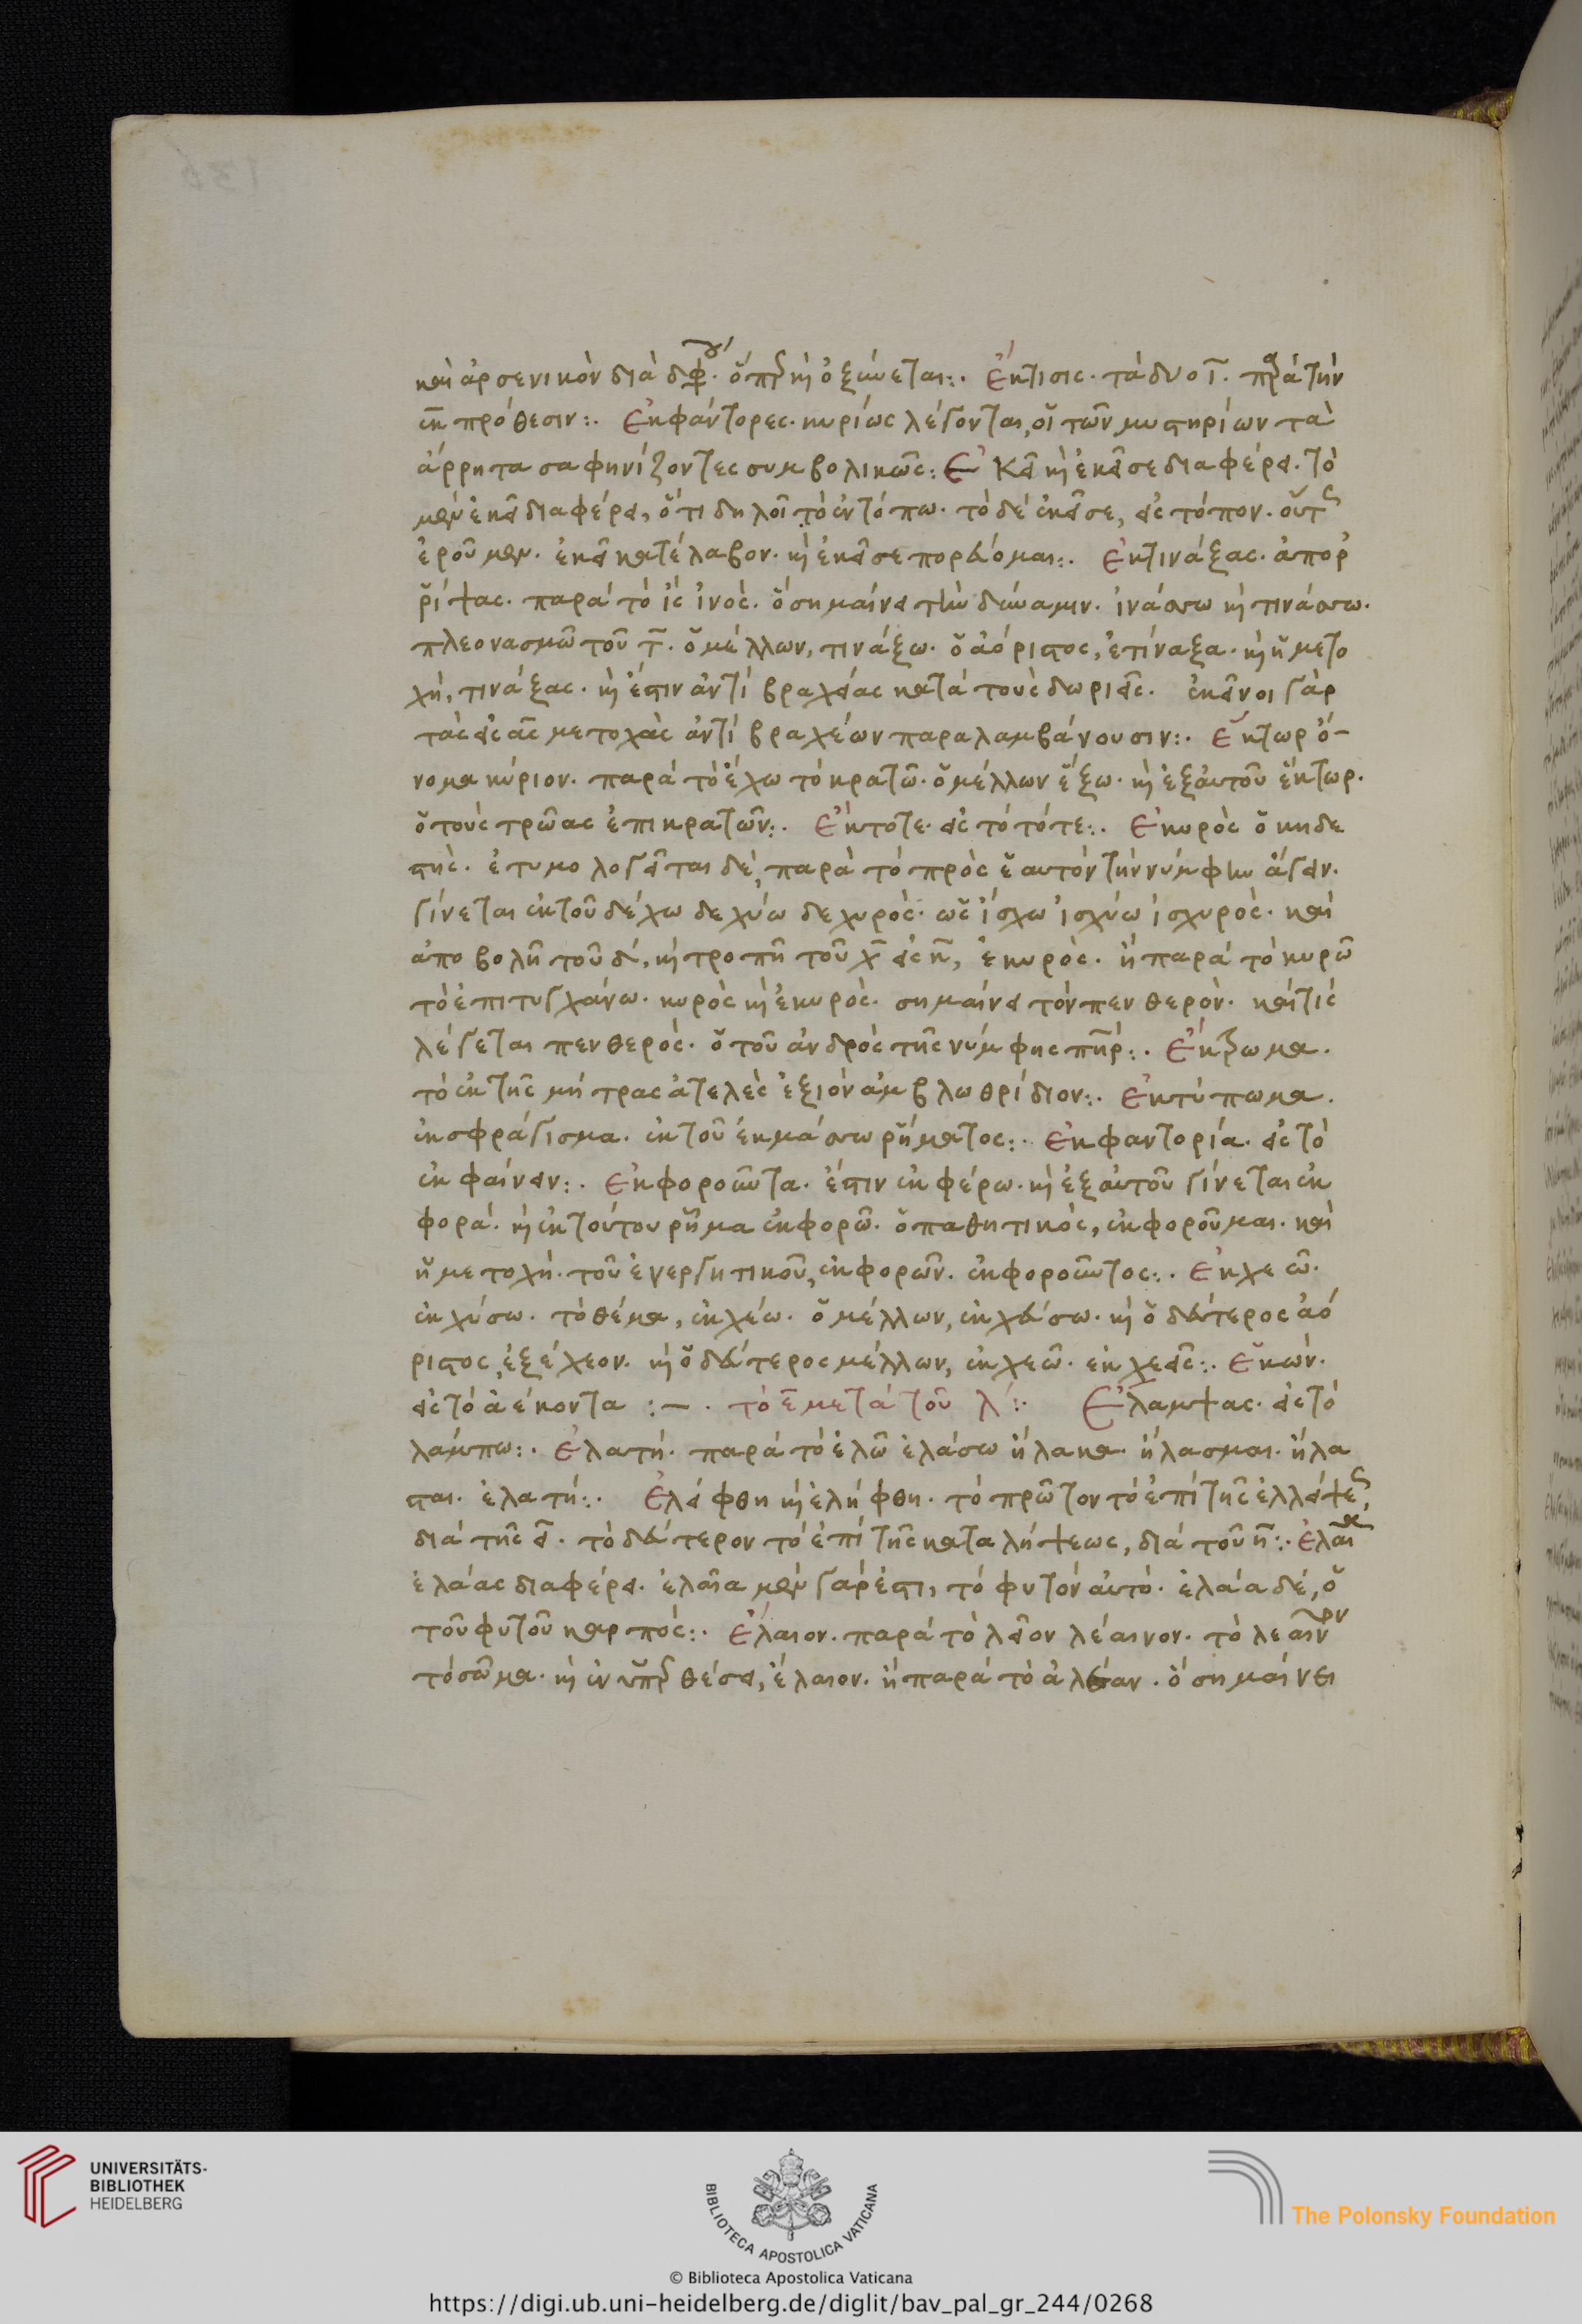 καὶ ἀρσενικὸν διὰ διφθόγγου. ὅπερ καὶ ὀξύνεται:. Ἔκτισις. τὰ δύο ῑ. παρὰ τὴν
ἐκ πρόθεσιν:. Ἐκφάντορες. κυρίως λέγονται, οἱ τῶν μυστηρίων τὰ
ἄρρητα σαφηνίζοντες συμβολικῶς: Ἐκεῖ καὶ ἐκεῖσε διαφέρει. τὸ
μὲν ἐκεῖ διαφέρει, ὅτι δηλοῖ τὸ ἐν τόπω. τὸ δὲ ἐκεῖσε, εἰς τόπον. οὕτως
ἐροῦμεν. ἐκεῖ κατέλαβον. καὶ ἐκεῖσε πορεύομαι:. Ἐκτινάξας. ἀπορ
ρίψας. παρὰ τὸ ἲς ἰνός. ὃ σημαίνει τὴν δύναμιν. ἰνάσσω καὶ τινάσσω.
πλεονασμῶ τοῦ τ̄. ὁ μέλλων, τινάξω. ὁ ἀόριστος, ἐτίναξα. καὶ ἡ μετο
χὴ, τινάξας. καὶ ἔστιν ἀντὶ βραχείας κατὰ τοὺς δωριεῖς. ἐκεῖνοι γὰρ
τὰς εἰς ας μετοχὰς ἀντὶ βραχέων παραλαμβάνουσιν:. Ἕκτωρ ὄ-
νομα κύριον. παρὰ τὸ ἔχω τὸ κρατῶ. ὁ μέλλων ἕξω. καὶ ἐξ αὐτοῦ ἕκτωρ.
ὁ τοὺς τρῶας ἐπικρατῶν:. Ἔκτοτε. εἰς τὸ τότε:. Ἑκυρὸς ὁ κηδε
στής. ἐτυμολογεῖται δὲ, παρὰ τὸ πρὸς ἑαυτὸν τὴν νύμφην ἄγειν.
γίνεται ἐκ τοῦ δέχω δεχύω δεχυρός. ὡς ἴσχω ἰσχύω ἰσχυρός. καὶ
ἀποβολῆ τοῦ δ, καὶ τροπῆ τοῦ χ̄ εἰς κ̄, ἑκυρός. ἢ παρὰ τὸ κυρῶ
τὸ ἐπιτυγχάνω. κυρὸς καὶ ἑκυρός. σημαίνει τὸν πενθερόν. καὶ τίς
λέγεται πενθερός. ὁ τοῦ ἀνδρὸς τῆς νύμφης πηρ:. Ἔκτρωμα.
τὸ ἐκ τῆς μήτρας ἀτελὲς ἐξιὸν ἀμβλωθρίδιον:. Ἐκτύπωμα.
ἐκσφράγισμα. ἐκ τοῦ ἐκμάσσω ρήματος:. Ἐκφαντορία. εἰς τὸ
ἐκφαίνειν:. Ἐκφοροῦντα. ἔστιν ἐκφέρω. καὶ ἐξ αὐτοῦ γίνεται ἐκ
φορά. καὶ ἐκ τούτου ρῆμα ἐκφορῶ. ὁ παθητικὸς, ἐκφοροῦμαι. καὶ
ἡ μετοχὴ. τοῦ ἐνεργητικοῦ, ἐκφορῶν. ἐκφοροῦντος:. Ἐκχεῶ.
ἐκχύσω. τὸ θέμα, ἐκχέω. ὁ μέλλων, ἐκχεύσω. καὶ ὁ δεύτερος ἀό
ριστος, ἐξέχεον. καὶ ὁ δεύτερος μέλλων, ἐκχεῶ. ἐκχεεῖς:. Ἑκών.
εἰς τὸ ἀέκοντα :–. τὸ ε̄ μετὰ τοῦ λ:. Ἔλαμψας. εἰς τὸ
λάμπω:. Ἐλατή. παρὰ τὸ ἐλῶ ἐλάσω ἤλακα. ἤλασμαι. ἤλα
σται. ἐλατή:. Ἐλείφθη καὶ ἐλήφθη. τὸ πρῶτον τὸ ἐπὶ τῆς ἐλλείψεως,
διὰ τῆς ει. τὸ δεύτερον τὸ ἐπὶ τῆς καταλήψεως, διὰ τοῦ η̄:. Ἐλαία
ἐλάας διαφέρει. ἐλαῖα μὲν γάρ ἐστι, τὸ φυτὸν αὐτό. ἐλάα δὲ, ὁ
τοῦ φυτοῦ καρπός:. Ἔλαιον. παρὰ τὸ λεῖον λέαινον. τὸ λεαῖνον
τὸ σῶμα. καὶ ἐν ὑπερθέσει, ἔλαιον. ἢ παρὰ τὸ ἀλέαν. ὃ σημαίνει
UNIVERSITÄTS-
BIBLIOTHEK
HEIDELBERG
BIBLIOTECA APOSTOLICA VATICANA
The Polonsky Foundation
© Biblioteca Apostolica Vaticana
https://digi.ub.uni-heidelberg.de/diglit/bav_pal_gr_244/0268